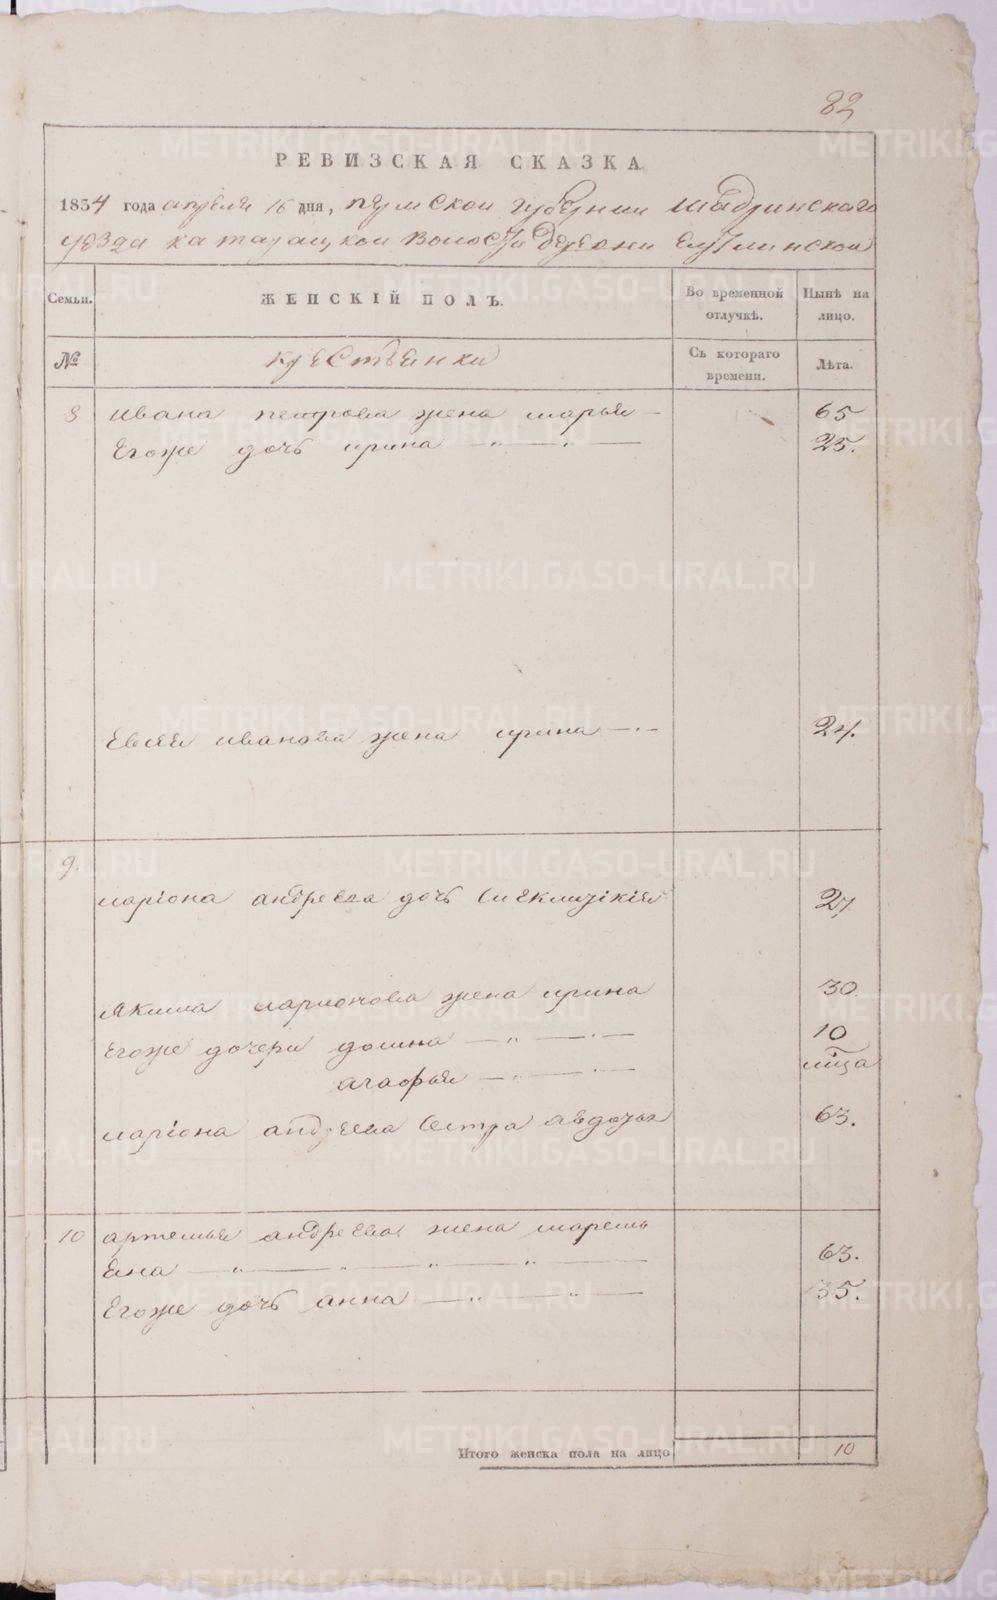 82
РЕВИЗСКАЯ СКАЗКА
1834 года апреля 16 дня, пермской губернии шадринскаго
уезда катарацкой волости деревни
Семьи. ЖЕНСКІЙ ПОЛЪ. Во временной отлучкѣ. Нынѣ на лицо.
№ крестьянки Съ котораго времени. Лѣта.
8 ивана петрова жена марья 65
Егоже дочь ирина 25.
Евсея иванова жена ирина 24.
9.
лариона андреева дочь 27
Якима ларионова жена ирина 30
Егоже дочери домна 10
агафья мца
лариона андреева сестра авдотья 63.
10 артемья андреева жена марем
яна 63.
Егоже дочь анна 35.
Итого женска пола на лицо 10
METRIKI.GASO-URAL.RU